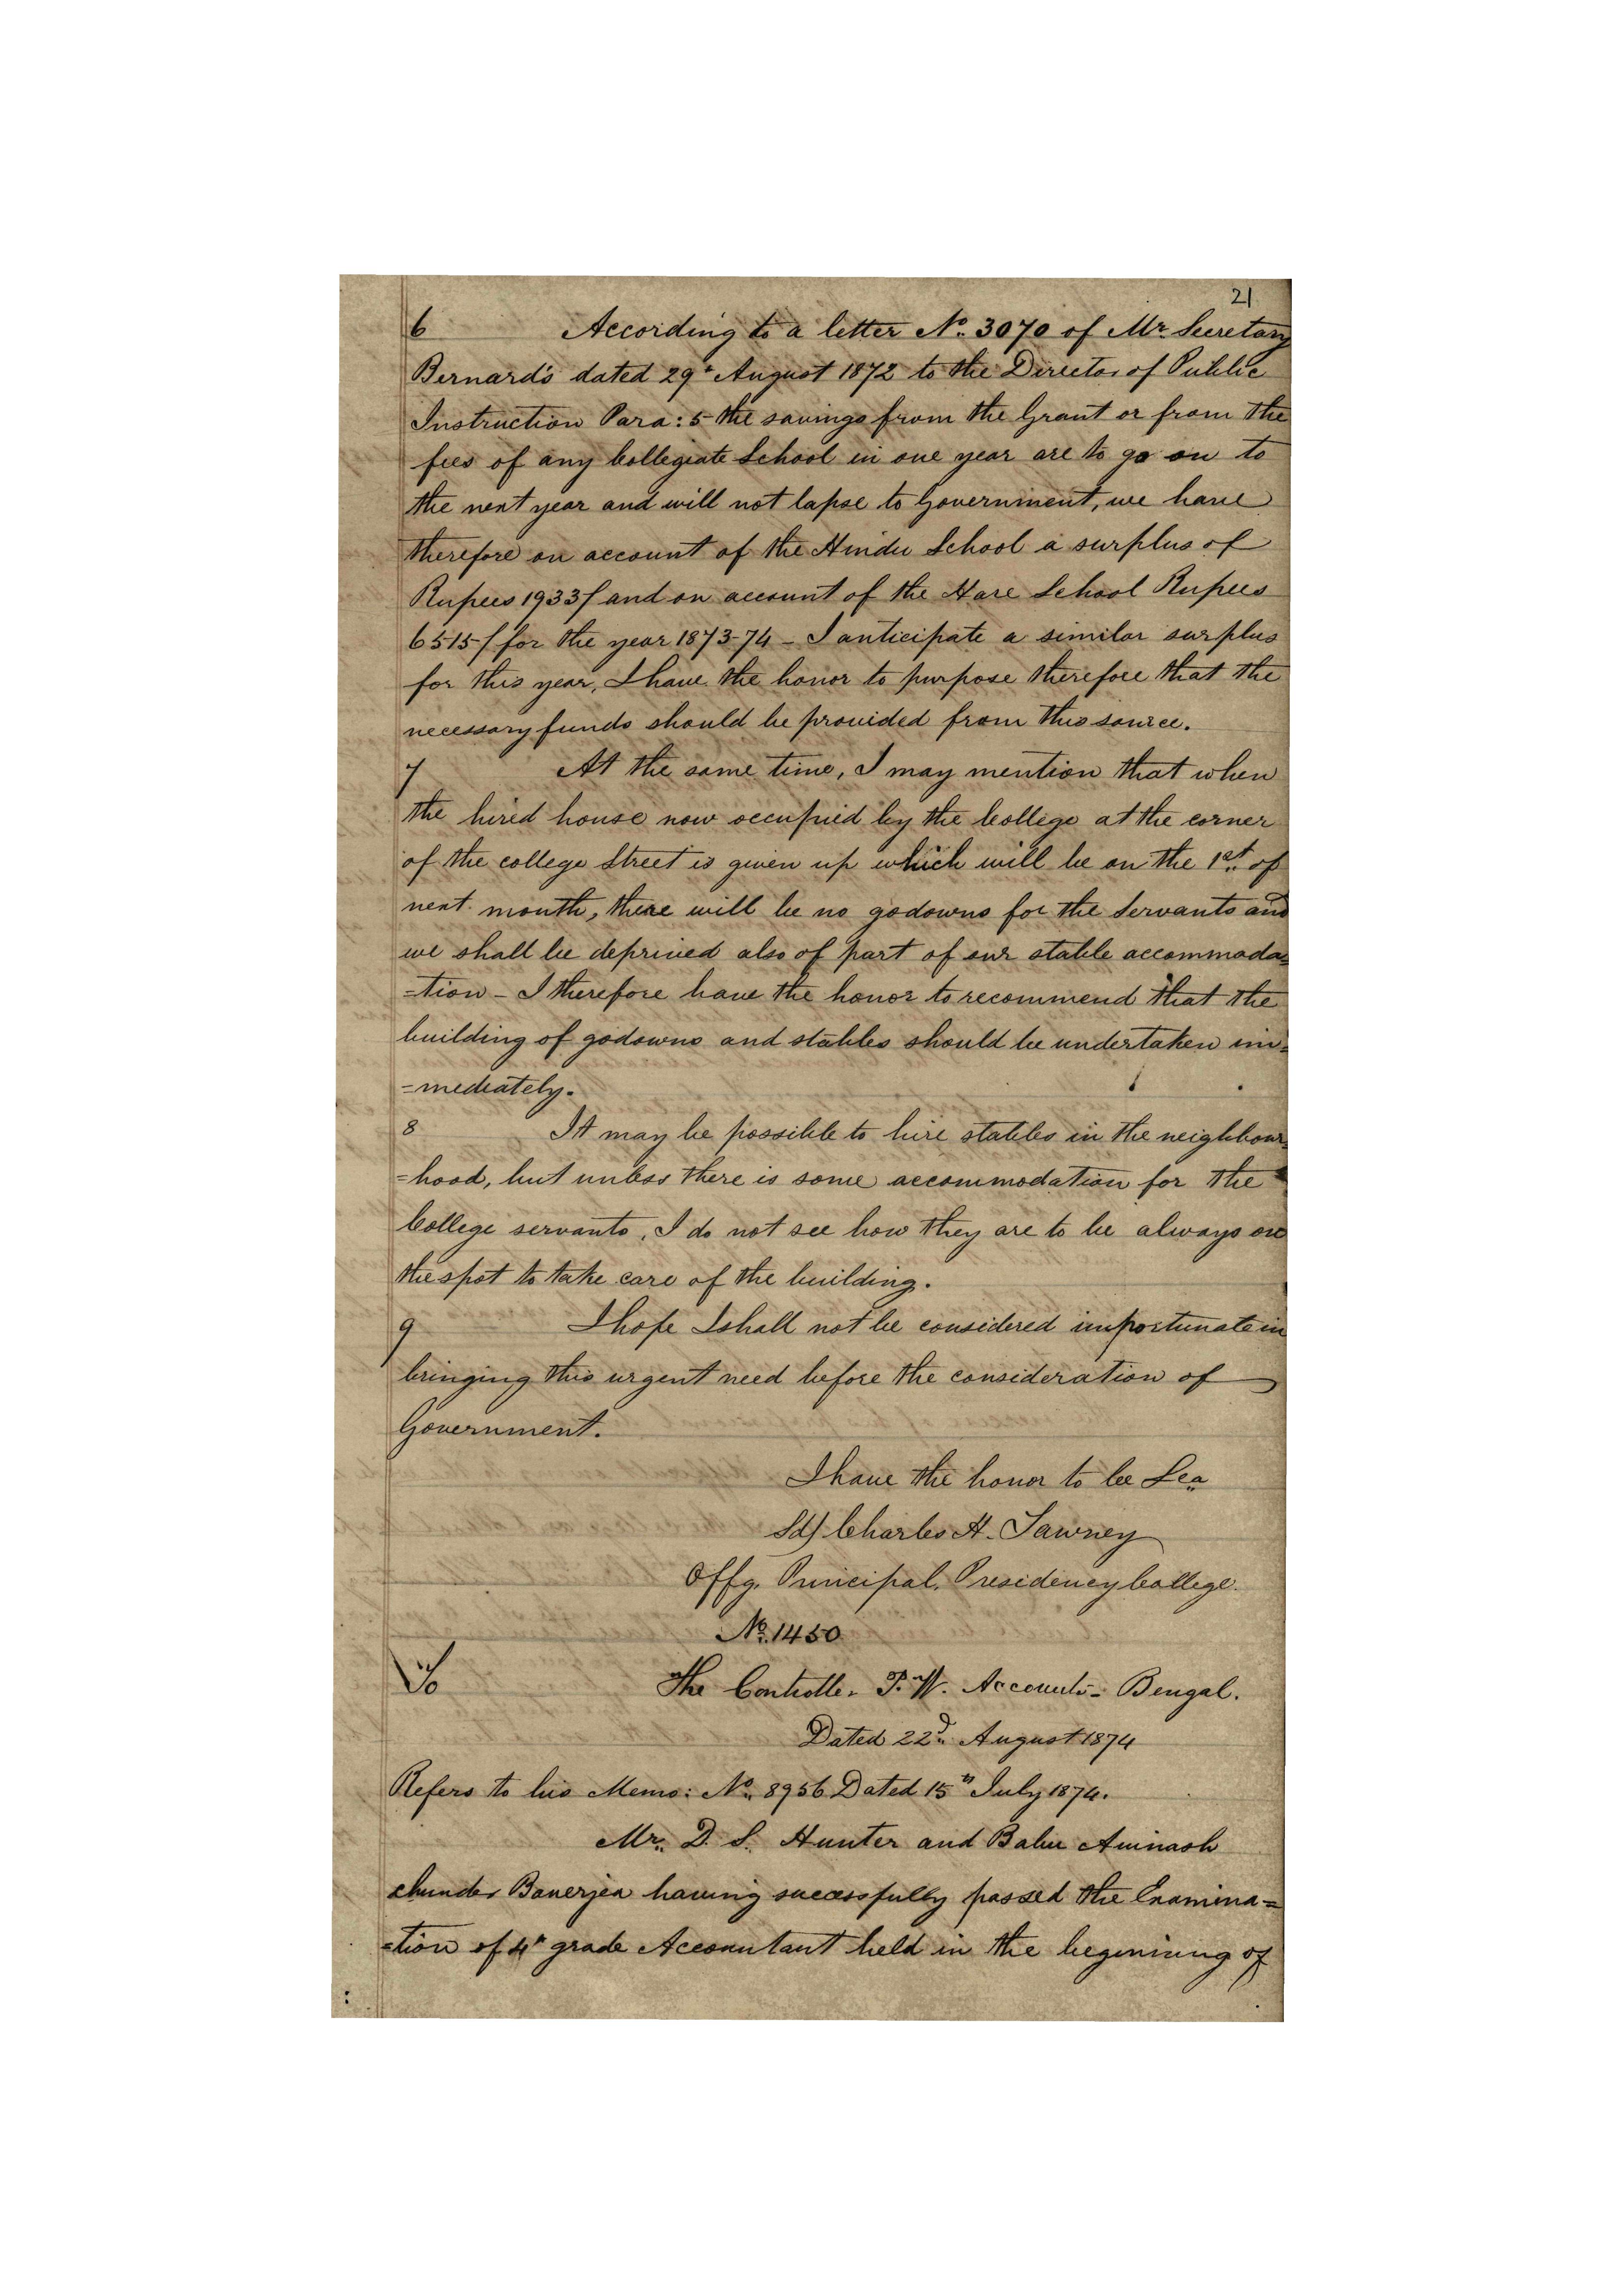 21
6 According to a letter No. 3070 of Mr. Secretary
Bernard's dated 29th August 1872 to the Director of Public
Instruction Para: 5 the savings from the Grant or from the
fees of any Collegiate School in one year are to go on to
the next year and will not lapse to Government, we have
therefore on account of the Hindu School a surplus of
Rupees 1933/ and on account of the Hare School Rupees
6515/ for the year 1873-74 - I anticipate a similar surplus
for this year, I have the honor to purpose therefore that the
necessary funds should be provided from this source.
7 At the same time, I may mention that when
the hired house now occupied by the College at the corner
of the college Street is given up which will be on the 1st of
next month, there will be no godowns for the Servants and
we shall be deprived also of part of our stable accommoda=
=tion - I therefore have the honor to recommend that the
building of godowns and stables should be undertaken im=
=mediately.
8 It may be possible to hire stables in the neighbour=
=hood, but unless there is some accommodation for the
College servants, I do not see how they are to be always on
the spot to take care of the building.
9 I hope I shall not be considered importunate in
bringing this urgent need before the consideration of
Government.
I have the honor to be &ca
Sd/ Charles H. Tawney
Offg. Principal, Presidency College.
No. 1450
To The Controller P. W. Accounts - Bengal.
Dated 22d August 1874
Refers to his Memo: No. 8956 Dated 15th July 1874.
Mr. D. S. Hunter and Babu Avinash
chunder Banerjea having successfully passed the Examina=
=tion of 4th grade Accountant held in the beginning of